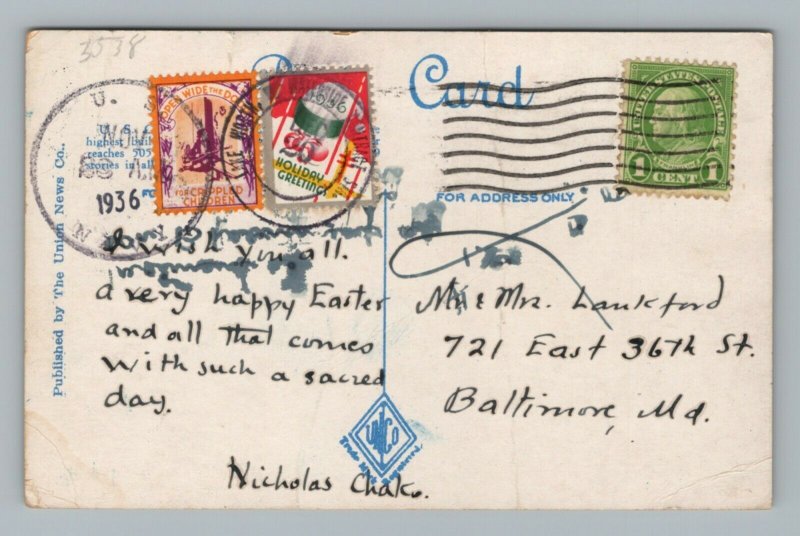 3538
Card
U. S.
NOV
1936
N. Y.
OPEN WIDE THE DOOR
FOR CRIPPLED
CHILDREN
1936
HOLIDAY
GREETINGS
UNITED STATES POSTAGE
1 CENT 1
U. S.
highest
reaches 505
stories in all
FOR ADDRESS ONLY
Published by The Union News Co.,
I wish you all.
a very happy Easter
and all that comes
with such a sacred
day.
Nicholas Chako.
Mr & Mrs. Lankford
721 East 36th St.
Baltimore, Md.
UNCO
Trade Mark Registered